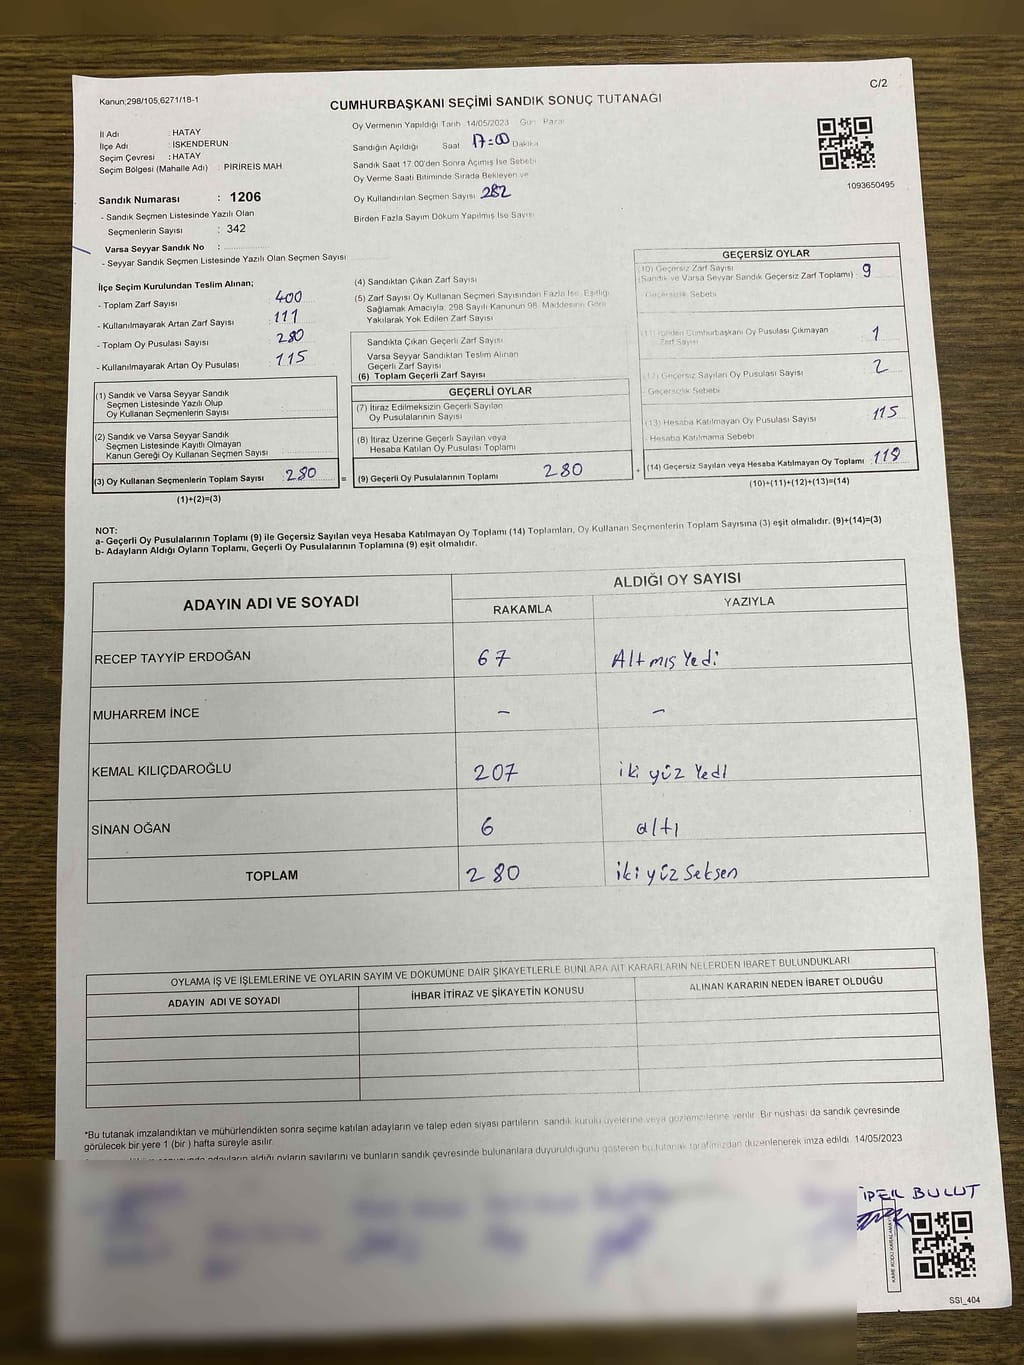 Kanun;298/105,6271/18-1
C/2
CUMHURBAŞKANI SEÇİMİ SANDIK SONUÇ TUTANAĞI
İl Adı : HATAY
İlçe Adı : İSKENDERUN
Seçim Çevresi : HATAY
Seçim Bölgesi (Mahalle Adı) : PİRİREİS MAH
Sandık Numarası : 1206
- Sandık Seçmen Listesinde Yazılı Olan
Seçmenlerin Sayısı : 342
Varsa Seyyar Sandık No :
- Seyyar Sandık Seçmen Listesinde Yazılı Olan Seçmen Sayısı
Oy Vermenin Yapıldığı Tarih :14/05/2023 Gün Pazar
Sandığın Açıldığı Saat 17:00 Dakika
Sandık Saat 17:00'den Sonra Açımış İse Sebebi
Oy Verme Saati Bitiminde Sırada Bekleyen ve
Oy Kullandırılan Seçmen Sayısı 282
Birden Fazla Sayım Döküm Yapılmış İse Sayısı
1093650495
İlçe Seçim Kurulundan Teslim Alınan;
- Toplam Zarf Sayısı 400
- Kullanılmayarak Artan Zarf Sayısı 111
- Toplam Oy Pusulası Sayısı 280
- Kullanılmayarak Artan Oy Pusulası 115
(1) Sandık ve Varsa Seyyar Sandık
Seçmen Listesinde Yazılı Olup
Oy Kullanan Seçmenlerin Sayısı :
(2) Sandık ve Varsa Seyyar Sandık
Seçmen Listesinde Kayıtlı Olmayan
Kanun Gereği Oy Kullanan Seçmen Sayısı :
(3) Oy Kullanan Seçmenlerin Toplam Sayısı : 280
(1)+(2)=(3)
(4) Sandıktan Çıkan Zarf Sayısı
(5) Zarf Sayısı Oy Kullanan Seçmen Sayısından Fazla İse, Eşitliği
Sağlamak Amacıyla; 298 Sayılı Kanunun 98. Maddesine Göre
Yakılarak Yok Edilen Zarf Sayısı
Sandıkta Çıkan Geçerli Zarf Sayısı
Varsa Seyyar Sandıktan Teslim Alınan
Geçerli Zarf Sayısı
(6) Toplam Geçerli Zarf Sayısı
GEÇERLİ OYLAR
(7) İtiraz Edilmeksizin Geçerli Sayılan
Oy Pusulalarının Sayısı
(8) İtiraz Üzerine Geçerli Sayılan veya
Hesaba Katılan Oy Pusulası Toplamı
= (9) Geçerli Oy Pusulalarının Toplamı 280
GEÇERSİZ OYLAR
(10) Geçersiz Zarf Sayısı
(Sandık ve Varsa Seyyar Sandık Geçersiz Zarf Toplamı) : 9
Geçersizlik Sebebi
(11) İçinden Cumhurbaşkanı Oy Pusulası Çıkmayan
Zarf Sayısı 1
(12) Geçersiz Sayılan Oy Pusulası Sayısı 2
Geçersizlik Sebebi
(13) Hesaba Katılmayan Oy Pusulası Sayısı 115
Hesaba Katılmama Sebebi
+ (14) Geçersiz Sayılan veya Hesaba Katılmayan Oy Toplamı : 118
(10)+(11)+(12)+(13)=(14)
NOT:
a- Geçerli Oy Pusulalarının Toplamı (9) ile Geçersiz Sayılan veya Hesaba Katılmayan Oy Toplamı (14) Toplamları, Oy Kullanan Seçmenlerin Toplam Sayısına (3) eşit olmalıdır. (9)+(14)=(3)
b- Adayların Aldığı Oyların Toplamı, Geçerli Oy Pusulalarının Toplamına (9) eşit olmalıdır.
ADAYIN ADI VE SOYADI
ALDIĞI OY SAYISI
RAKAMLA YAZIYLA
RECEP TAYYİP ERDOĞAN 67 Altmış Yedi
MUHARREM İNCE - -
KEMAL KILIÇDAROĞLU 207 iki yüz Yedi
SİNAN OĞAN 6 altı
TOPLAM 280 iki yüz Seksen
OYLAMA İŞ VE İŞLEMLERİNE VE OYLARIN SAYIM VE DÖKÜMÜNE DAİR ŞİKAYETLERLE BUNLARA AİT KARARLARIN NELERDEN İBARET BULUNDUKLARI
ADAYIN ADI VE SOYADI İHBAR İTİRAZ VE ŞİKAYETİN KONUSU ALINAN KARARIN NEDEN İBARET OLDUĞU
*Bu tutanak imzalandıktan ve mühürlendikten sonra seçime katılan adayların ve talep eden siyasi partilerin sandık kurulu üyelerine veya gözlemcilerine verilir. Bir nüshası da sandık çevresinde
görülecek bir yere 1 (bir ) hafta süreyle asılır.
adayların aldığı oyların sayılarını ve bunların sandık çevresinde bulunanlara duyurulduğunu gösteren bu tutanak tarafımızdan düzenlenerek imza edildi. 14/05/2023
İPEK BULUT
KARE KODU KARALAMAYINIZ
SSI_404